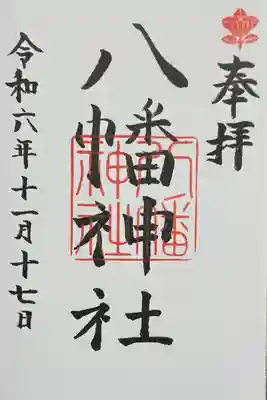 奉拝
八幡神社
八幡
神社
令和六年十一月十七日